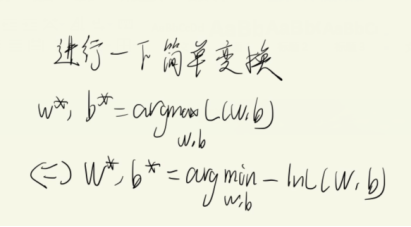 进行一下简单变换
w*, b* = argmax L(w,b)
w,b
(=) w*, b* = arg min - lnL(w,b)
w,b